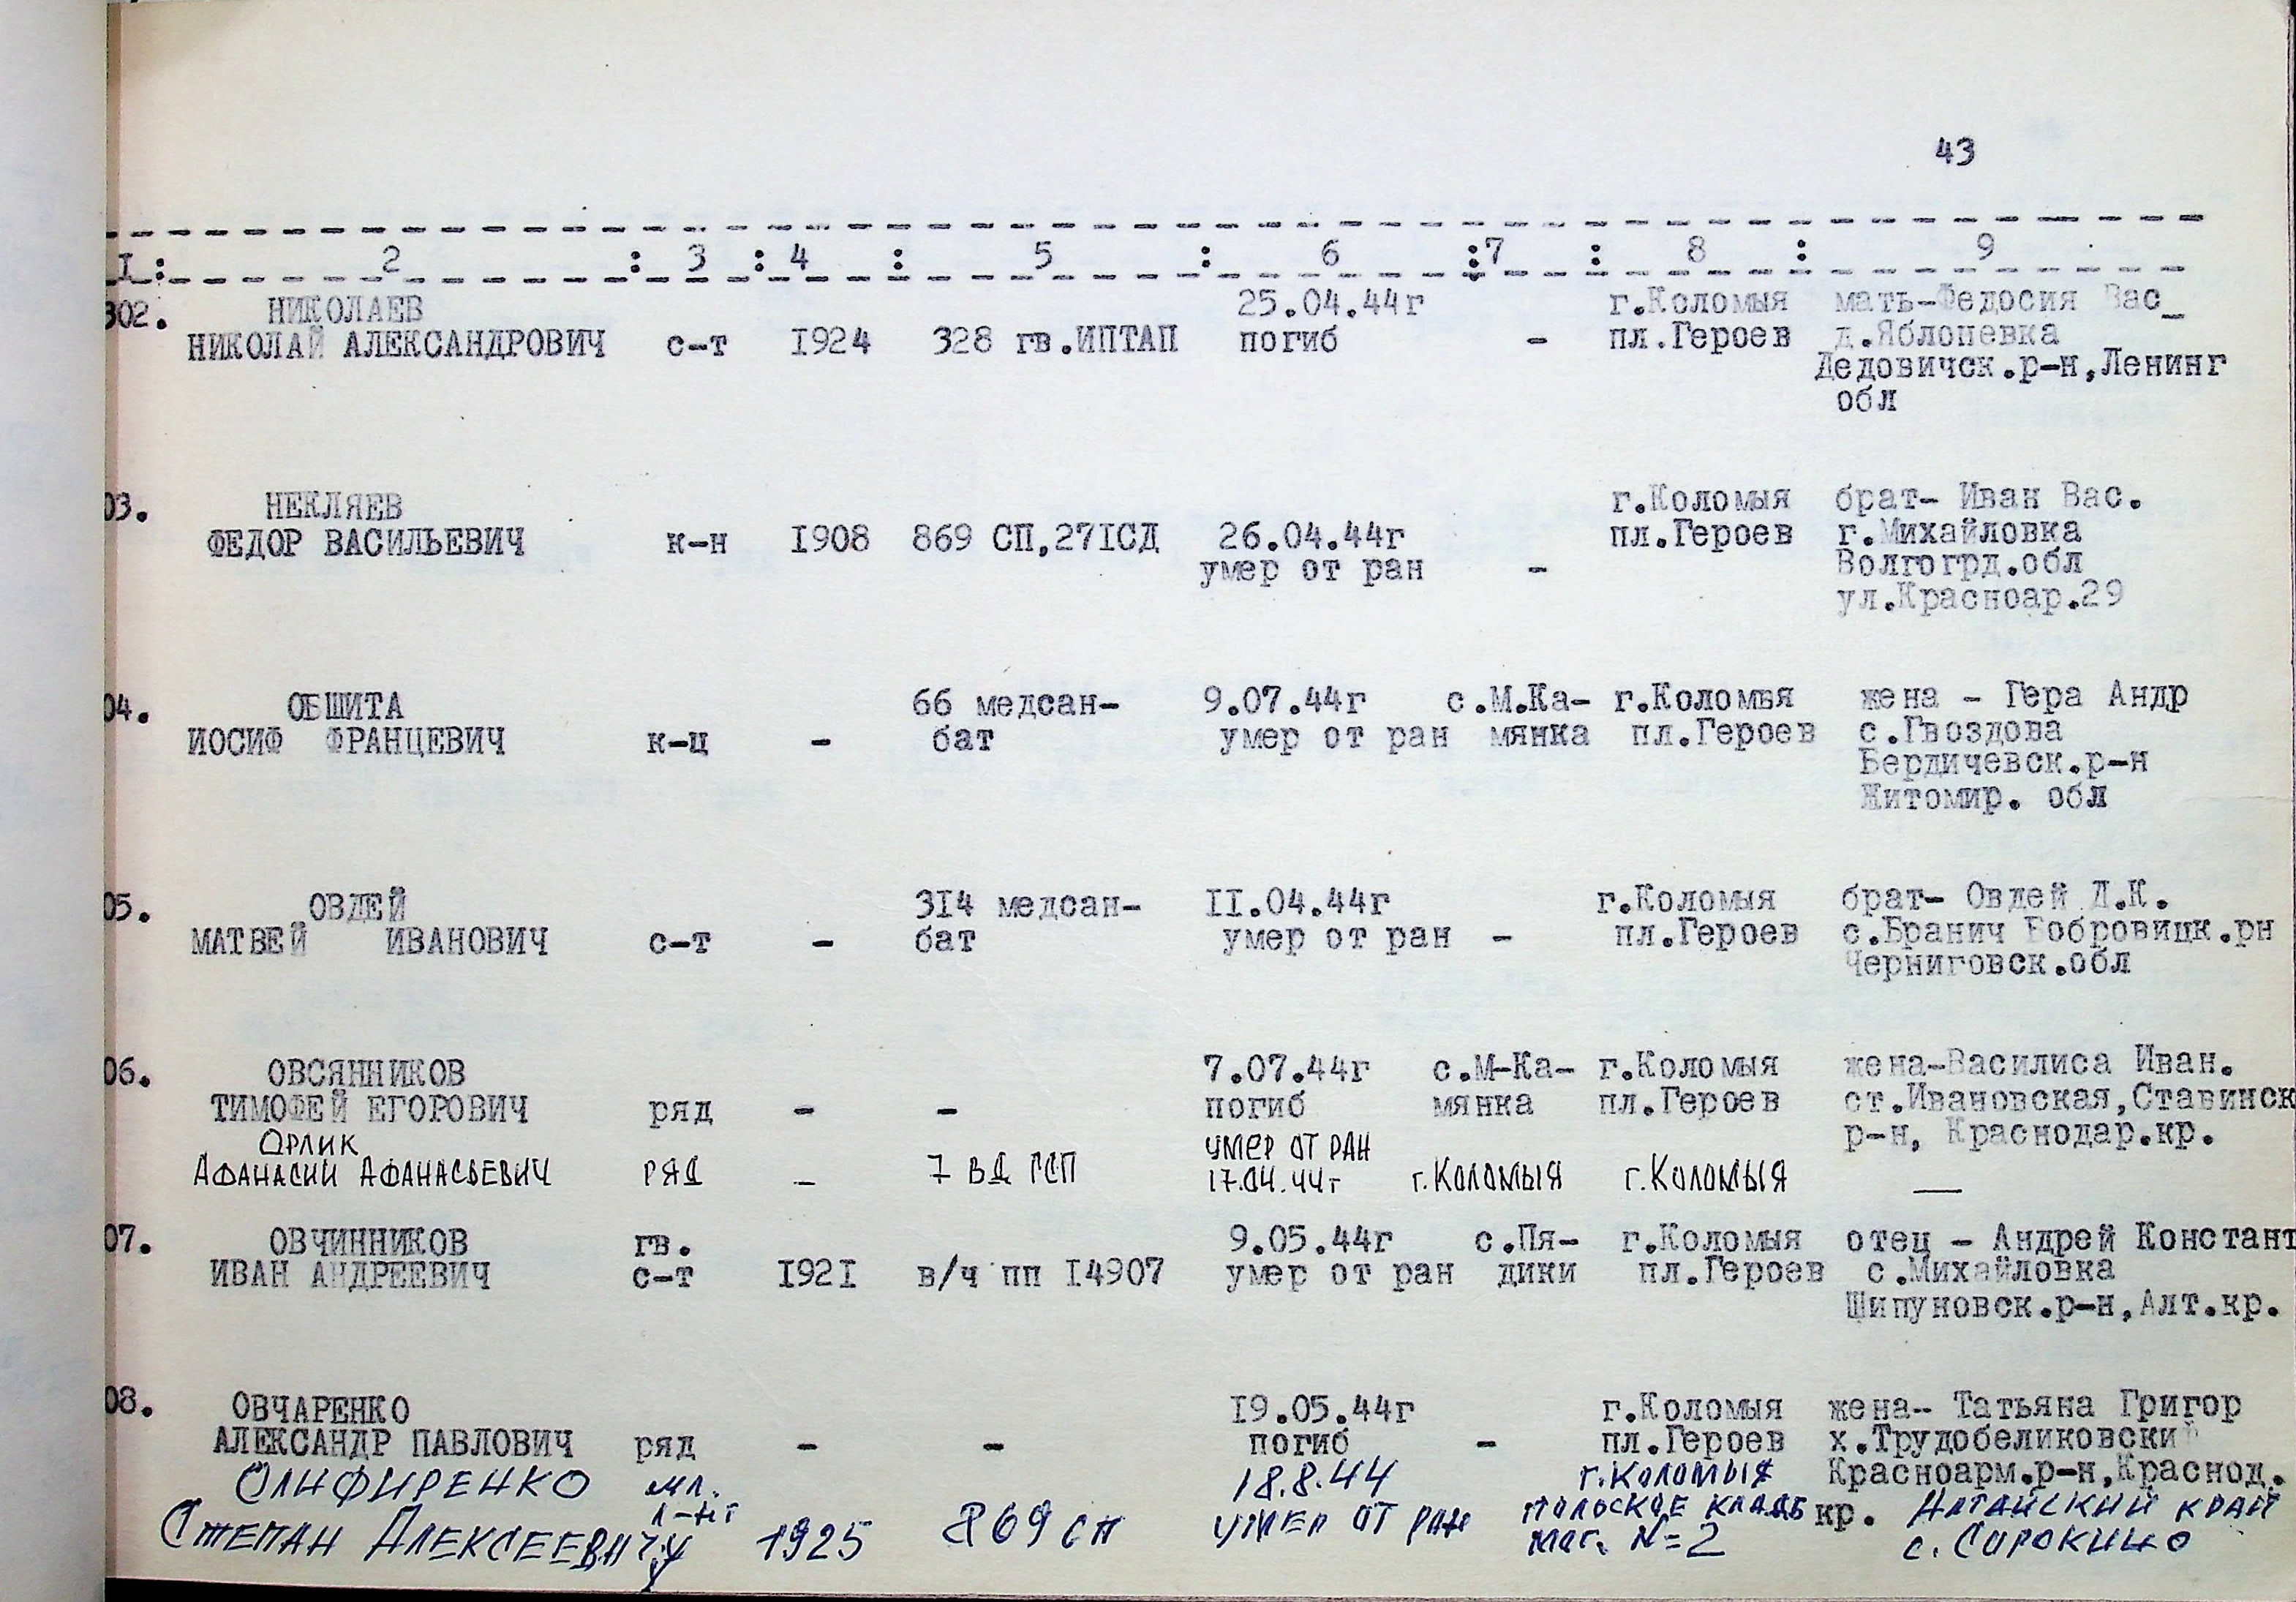 43
I : 2 : 3 : 4 : 5 : 6 : 7 : 8 : 9
302. НИКОЛАЕВ 25.04.44г г.Коломыя мать-Федосия Вас_
НИКОЛАЙ АЛЕКСАНДРОВИЧ с-т I924 328 гв.ИПТАП погиб - пл.Героев д.Яблоневка
Дедовичск.р-н,Ленинг
обл
03. НЕКЛЯЕВ г.Коломыя брат- Иван Вас.
ФЕДОР ВАСИЛЬЕВИЧ к-н I908 869 СП,27IСД 26.04.44г пл.Героев г.Михайловка
умер от ран - Волгогрд.обл
ул.Красноар.29
04. ОБШИТА 66 медсан- 9.07.44г с.М.Ка- г.Коломыя жена - Гера Андр
ИОСИФ ФРАНЦЕВИЧ к-ц - бат умер от ран мянка пл.Героев с.Гвоздова
Бердичевск.р-н
Житомир. обл
05. ОВДЕЙ 3I4 медсан- II.04.44г г.Коломыя брат- Овдей Д.К.
МАТВЕЙ ИВАНОВИЧ с-т - бат умер от ран - пл.Героев с.Бранич Бобровицк.рн
Черниговск.обл
06. ОВСЯННИКОВ 7.07.44г с.М-Ка- г.Коломыя жена-Василиса Иван.
ТИМОФЕЙ ЕГОРОВИЧ ряд - - погиб мянка пл.Героев ст.Ивановская,Ставинск
р-н, Краснодар.кр.
ОРЛИК УМЕР ОТ РАН
АФАНАСИЙ АФАНАСЬЕВИЧ РЯД - 7 ВД ГСП 17.04.44г г.КОЛОМЫЯ г.КОЛОМЫЯ —
07. ОВЧИННИКОВ гв. 9.05.44г с.Пя- г.Коломыя отец - Андрей Констант
ИВАН АНДРЕЕВИЧ с-т I92I в/ч пп I4907 умер от ран дики пл.Героев с.Михайловка
Шипуновск.р-н,Алт.кр.
08. ОВЧАРЕНКО I9.05.44г г.Коломыя жена- Татьяна Григор
АЛЕКСАНДР ПАВЛОВИЧ ряд - - погиб - пл.Героев х.Трудобеликовский
Красноарм.р-н,Краснод.
кр.
ОЛИФИРЕНКО мл. 18.8.44 г.КОЛОМЫЯ
л-нт ПОЛЬСКОЕ КЛАДБ АЛТАЙСКИЙ КРАЙ
СТЕПАН АЛЕКСЕЕВИЧ 1925 869 сп УМЕР ОТ РАН МОГ. №=2 с. СОРОКИНО